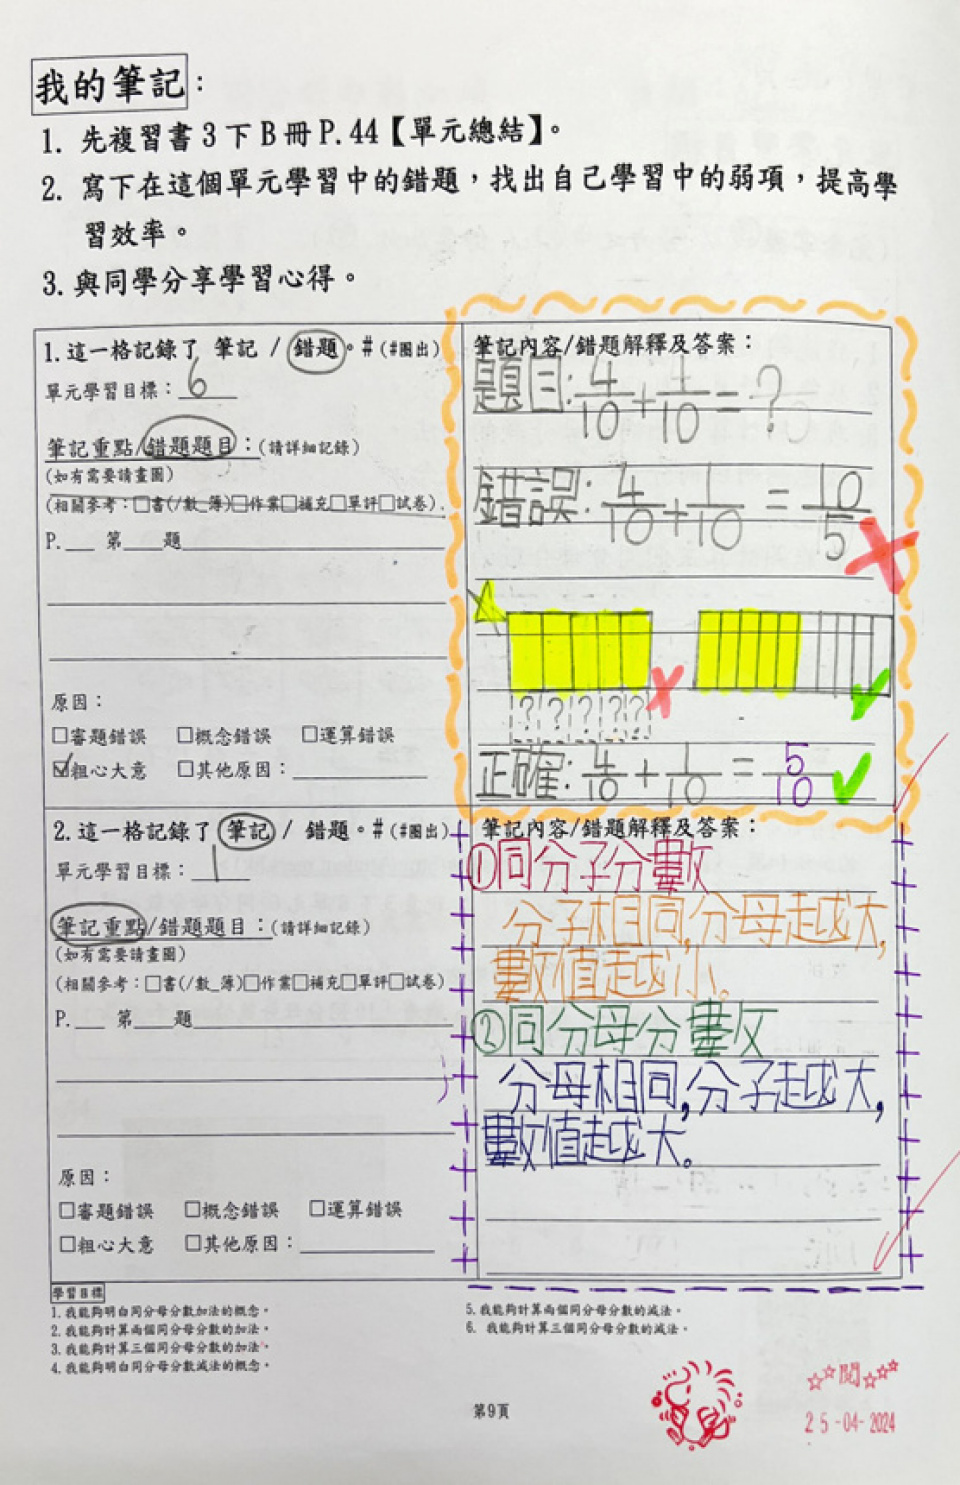 我的筆記：
1. 先複習書3下B冊P.44【單元總結】。
2. 寫下在這個單元學習中的錯題，找出自己學習中的弱項，提高學
習效率。
3. 與同學分享學習心得。
1.這一格記錄了 筆記 / 錯題。#(#圈出)
單元學習目標：6
筆記重點/錯題題目：(請詳細記錄)
(如有需要請畫圖)
(相關參考：□書(/數_簿)□作業□補充□單評□試卷).
P.___ 第___題
原因：
□審題錯誤 □概念錯誤 □運算錯誤
☑粗心大意 □其他原因：
筆記內容/錯題解釋及答案：
題目:4/10+1/10=?
錯誤:4/10+1/10=10/5
? ? ? ? ?
正確:4/10+1/10=5/10
2.這一格記錄了 筆記 / 錯題。#(#圈出)
單元學習目標：1
筆記重點/錯題題目：(請詳細記錄)
(如有需要請畫圖)
(相關參考：□書(/數_簿)□作業□補充□單評□試卷)
P.___ 第___題
原因：
□審題錯誤 □概念錯誤 □運算錯誤
□粗心大意 □其他原因：
筆記內容/錯題解釋及答案：
①同分子分數
分子相同,分母越大,
數值越小。
②同分母分數
分母相同,分子越大,
數值越大。
學習目標
1.我能夠明白同分母分數加法的概念。
2.我能夠計算兩個同分母分數的加法。
3.我能夠計算三個同分母分數的加法。
4.我能夠明白同分母分數減法的概念。
5.我能夠計算兩個同分母分數的減法。
6. 我能夠計算三個同分母分數的減法。
第9頁
☆☆閱☆☆☆
25-04-2024